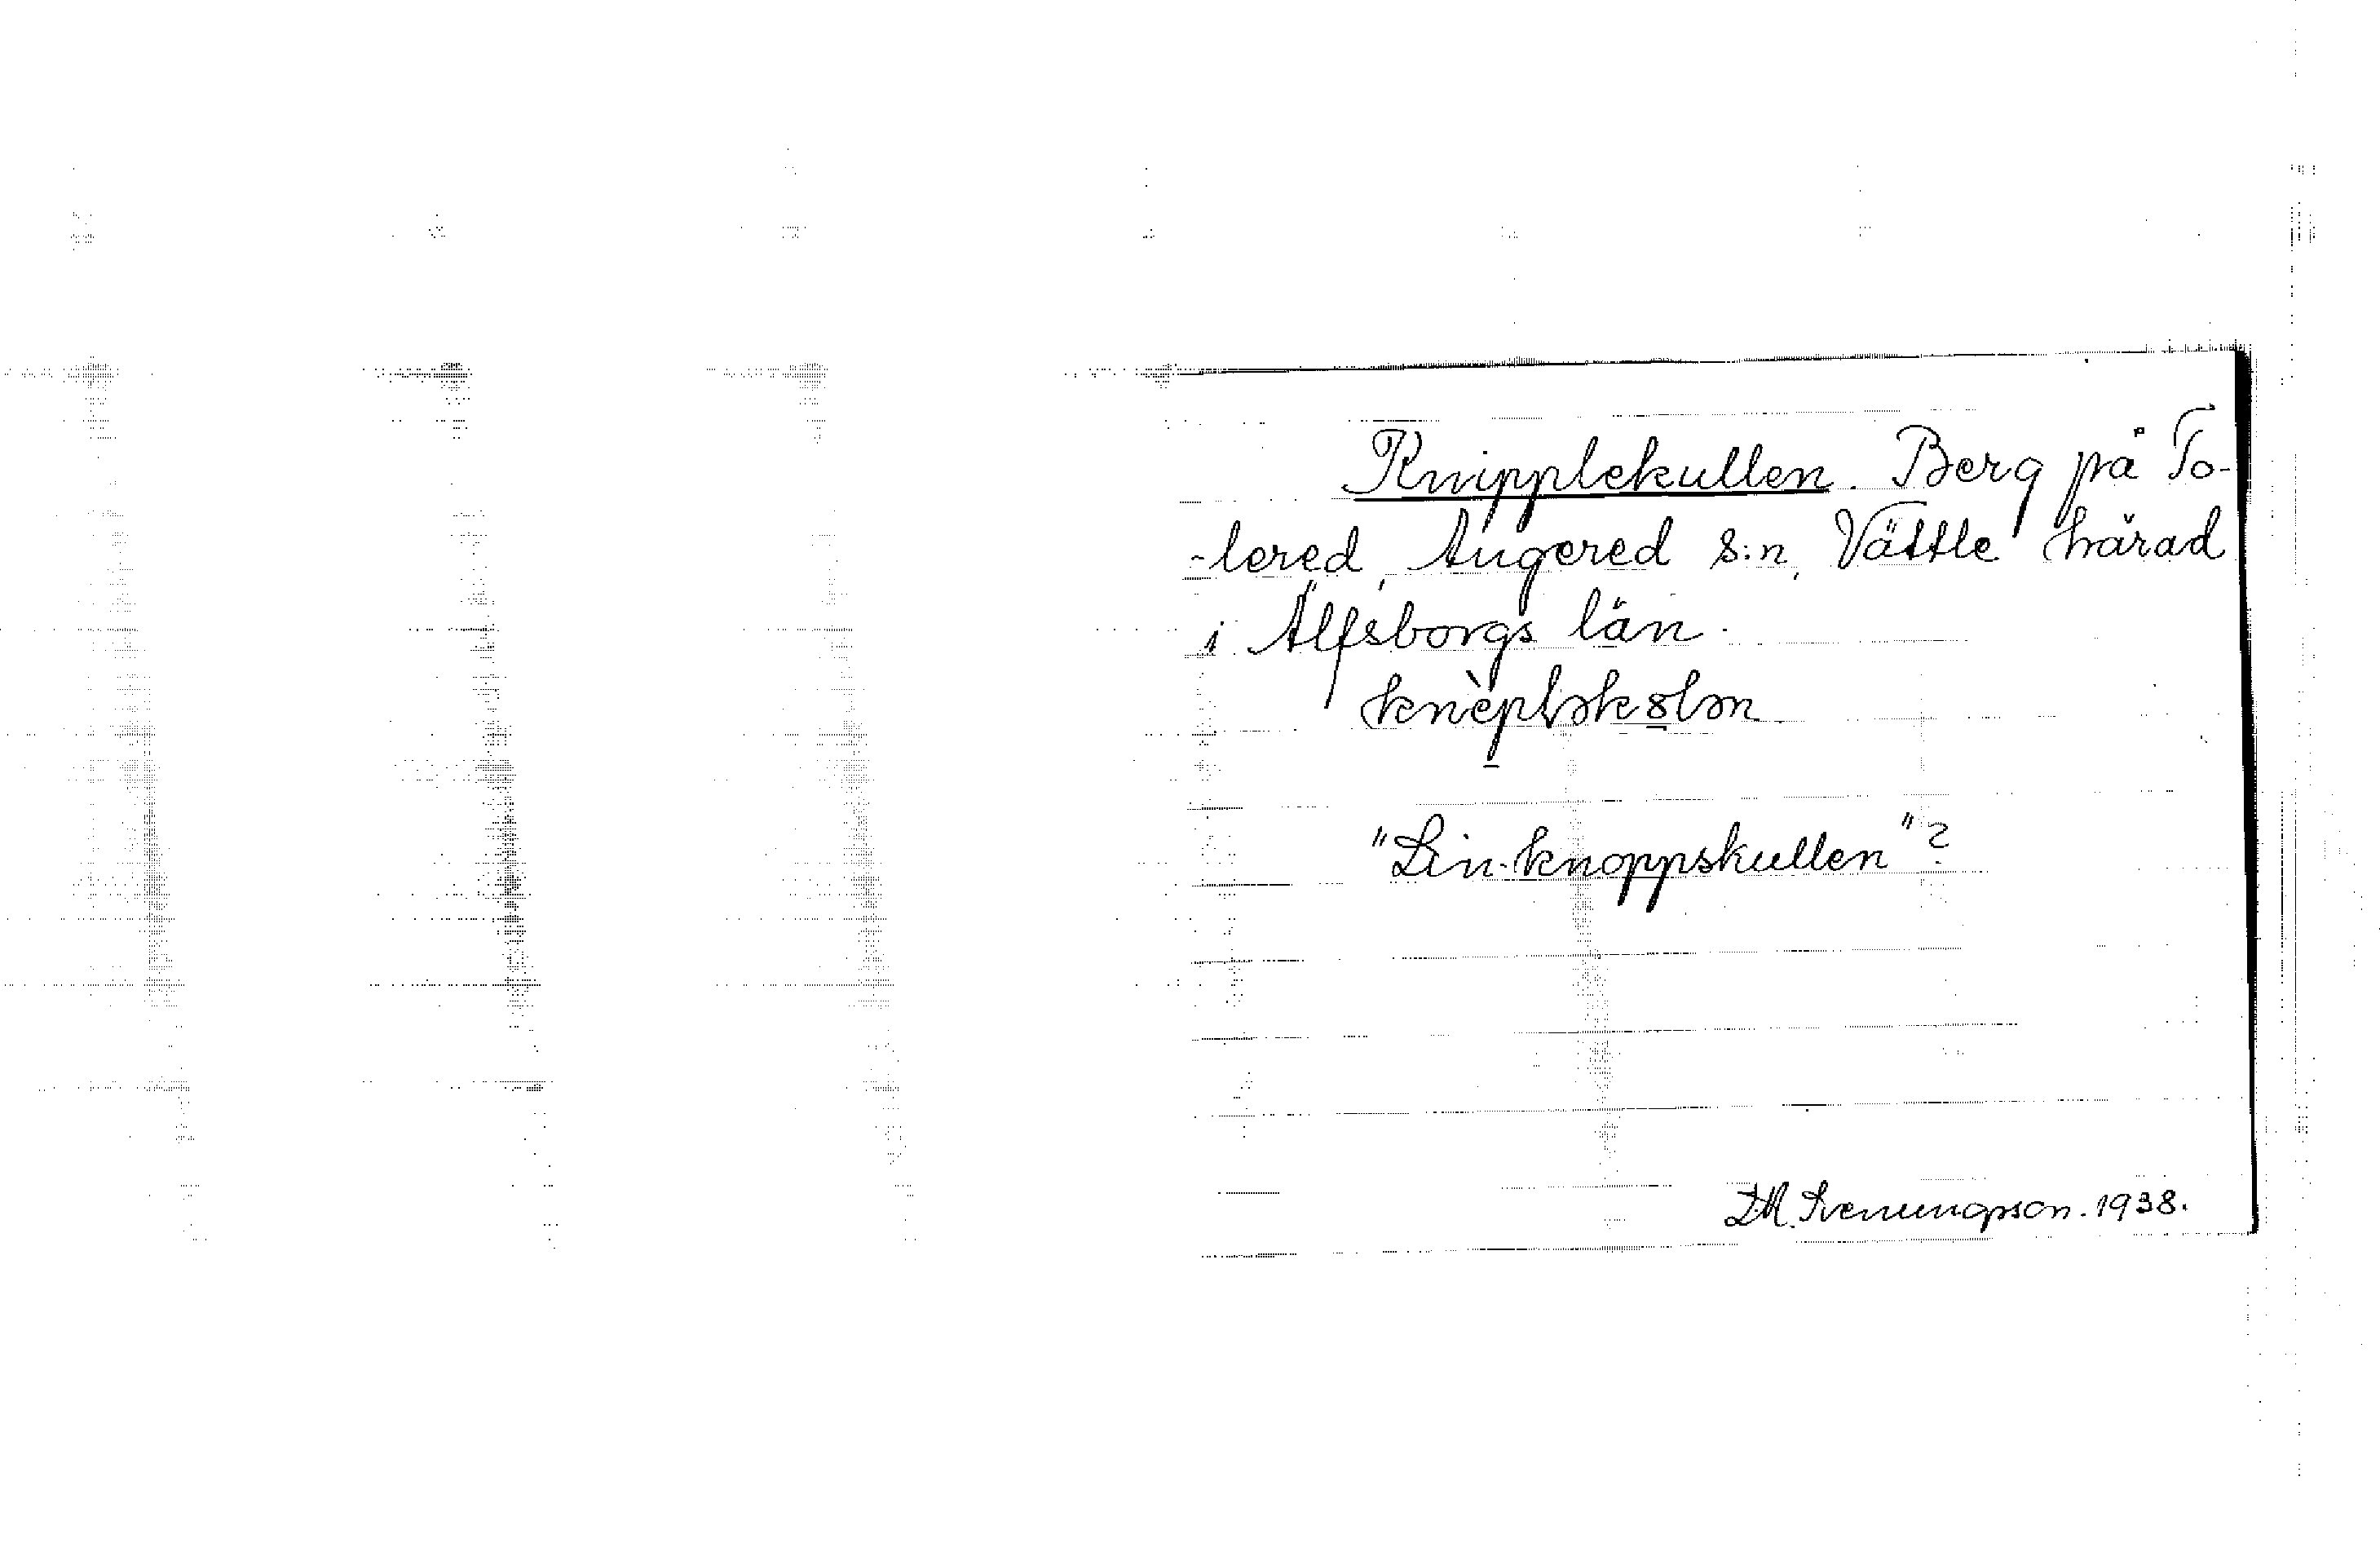 Knipplekullen. Berg på To-
-lered, Angered s:n, Vättle härad
i Älfsborgs län.
knèpləkȣlən
"Lin-knoppskullen"?
1938.